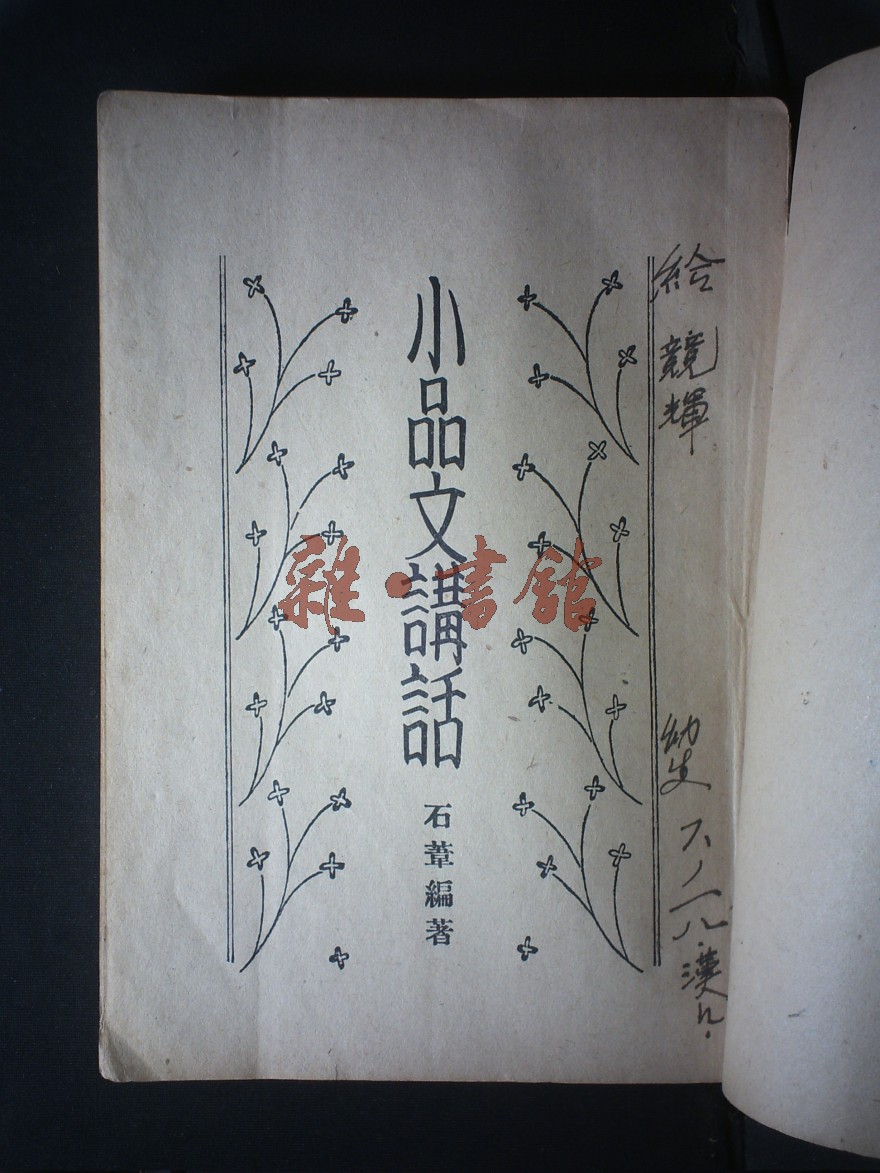 給 競輝
幼生
漢口
小品文講話
石葦編著
雜·書館